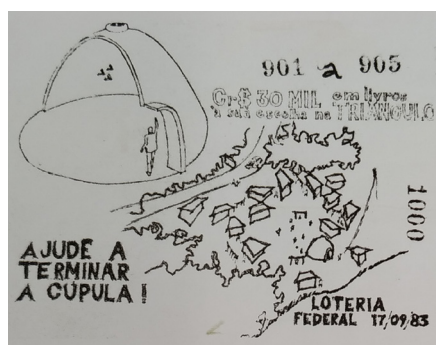 901 a 905
Cr$ 30 MIL em livros
à sua escolha na TRIÂNGULO
1000
AJUDE A
TERMINAR
A CÚPULA!
LOTERIA
FEDERAL 17/09/83